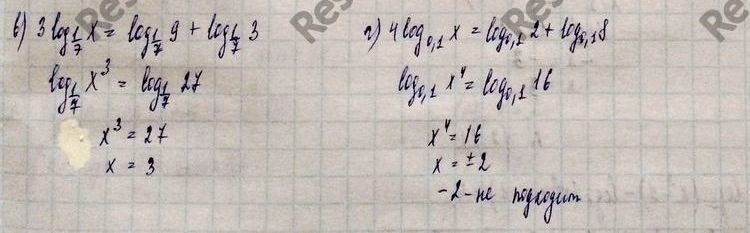 в) 3 log_{1/7} x = log_{1/7} 9 + log_{1/7} 3
log_{1/7} x³ = log_{1/7} 27
x³ = 27
x = 3
г) 4 log_{0,1} x = log_{0,1} 2 + log_{0,1} 8
log_{0,1} x⁴ = log_{0,1} 16
x⁴ = 16
x = ±2
-2 - не подходит